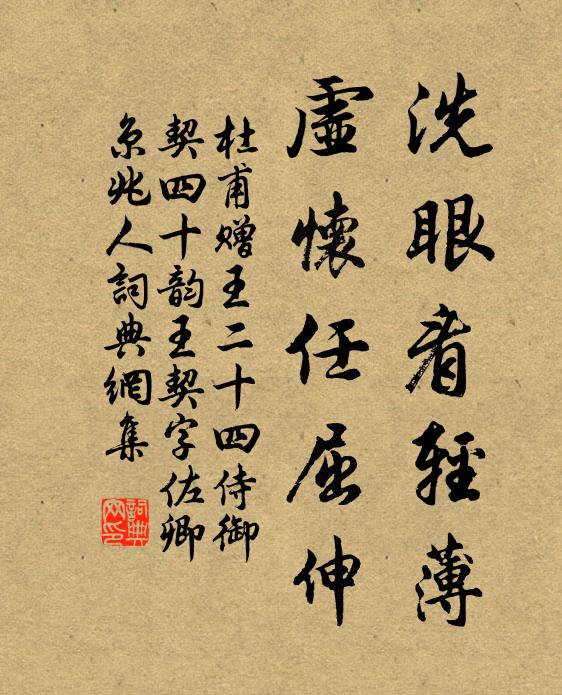 洗眼看輕薄
虛懷任屈伸
杜甫赠王二十四侍御
契四十韵王契字佐卿
京兆人詞典網集
詞典
网印